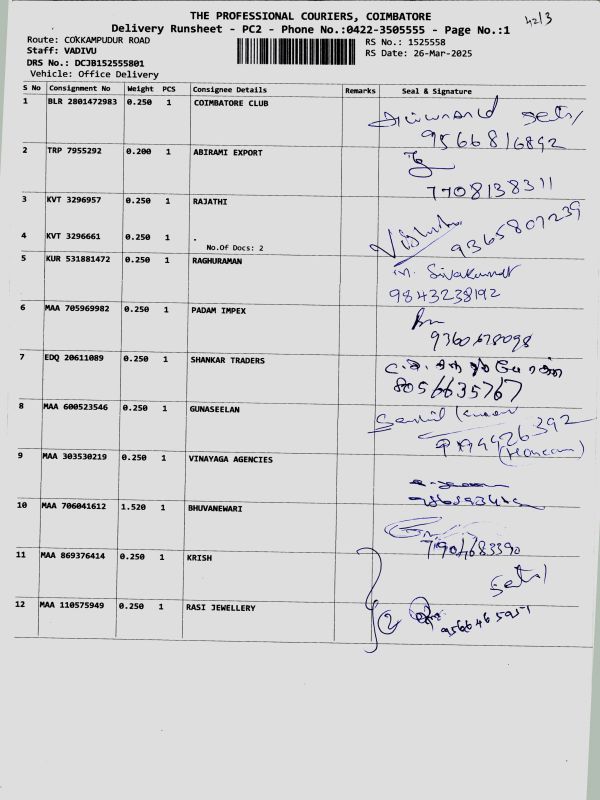 THE PROFESSIONAL COURIERS, COIMBATORE
42/3
Delivery Runsheet - PC2 - Phone No.:0422-3505555 - Page No.:1
Route: COKKAMPUDUR ROAD
RS No.: 1525558
Staff: VADIVU
RS Date: 26-Mar-2025
DRS No.: DCJB152555801
Vehicle: Office Delivery
S No Consignment No Weight PCS Consignee Details Remarks Seal & Signature
1 BLR 2801472983 0.250 1 COIMBATORE CLUB
9566816892
2 TRP 7955292 0.200 1 ABIRAMI EXPORT
7708138311
3 KVT 3296957 0.250 1 RAJATHI
9365807239
4 KVT 3296661 0.250 1 .
No.Of Docs: 2
5 KUR 531881472 0.250 1 RAGHURAMAN
m. Sivakumar
9843238192
6 MAA 705969982 0.250 1 PADAM IMPEX
7 EDQ 20611089 0.250 1 SHANKAR TRADERS
8056635767
8 MAA 600523546 0.250 1 GUNASEELAN
9 MAA 303530219 0.250 1 VINAYAGA AGENCIES
10 MAA 706041612 1.520 1 BHUVANEWARI
7904683390
11 MAA 869376414 0.250 1 KRISH
12 MAA 110575949 0.250 1 RASI JEWELLERY
2